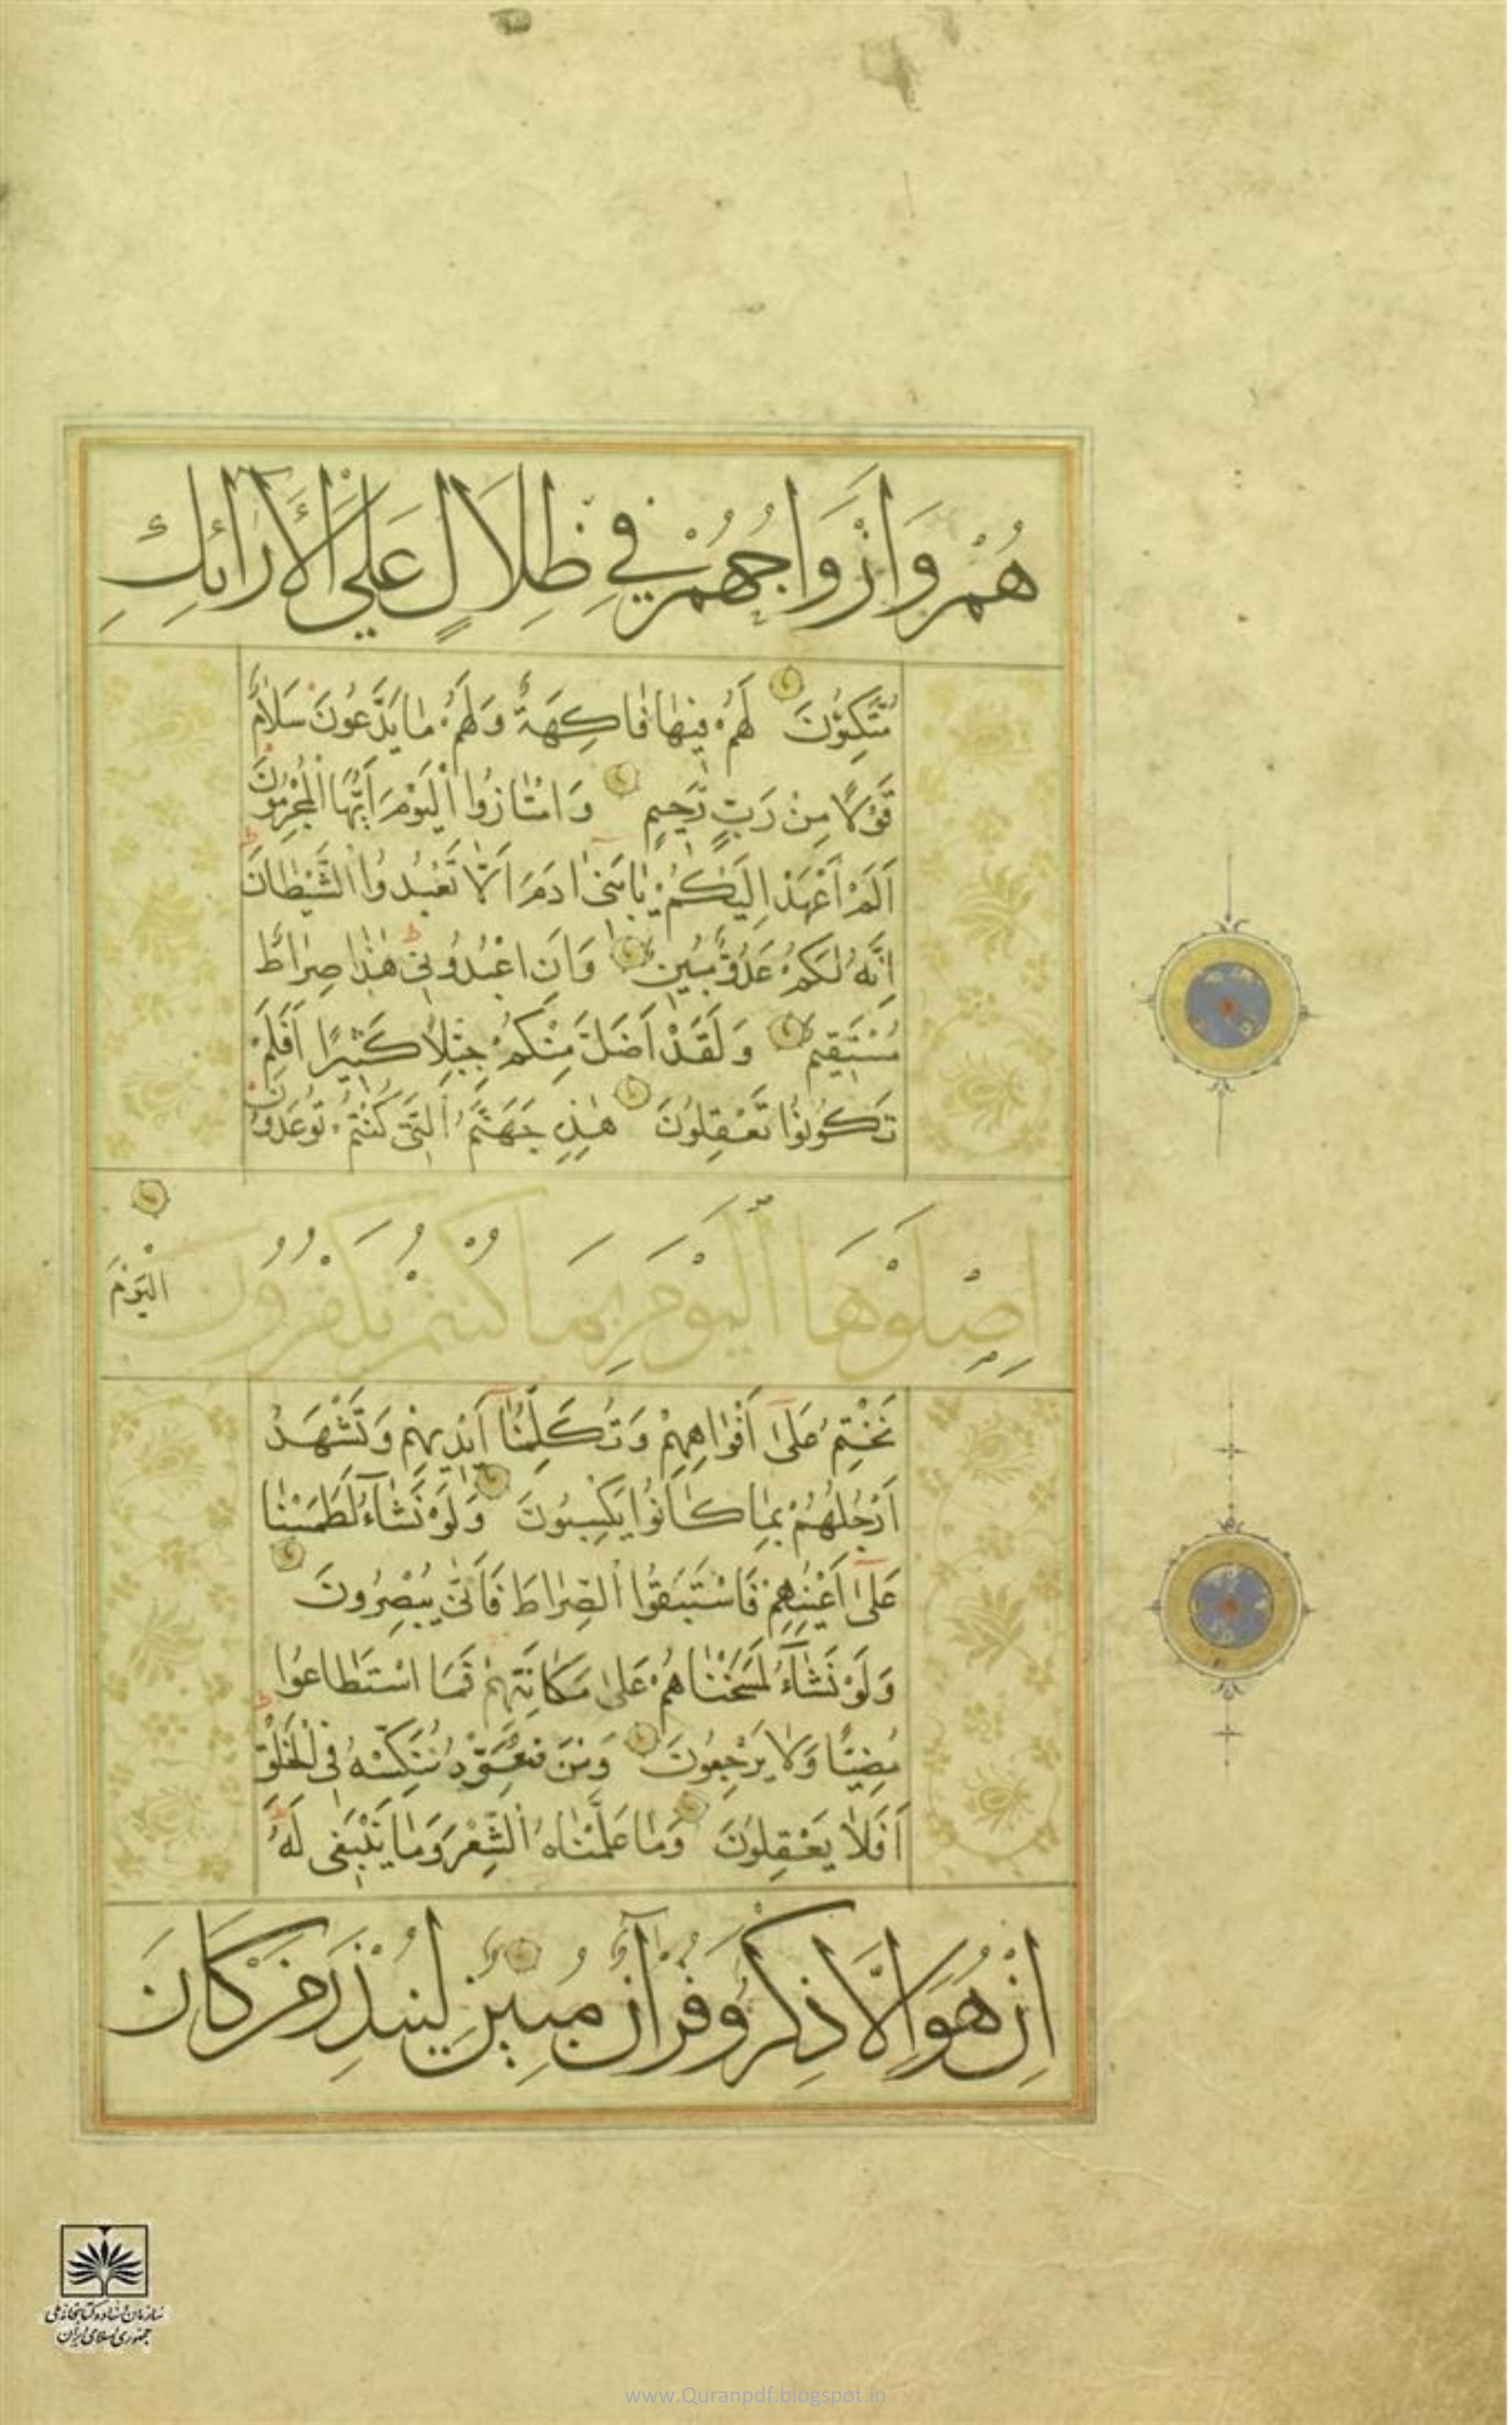 هُمْ وَاَزْوَاجُهُمْ فِي ظِلَالٍ عَلَى الْاَرَائِكِ
مُتَّكِؤُنَ لَهُمْ فِيهَا فَاكِهَةٌ وَلَهُمْ مَا يَدَّعُونَ سَلَامٌ
قَوْلًا مِنْ رَبٍّ رَحِيمٍ وَامْتَازُوا الْيَوْمَ اَيُّهَا الْمُجْرِمُونَ
اَلَمْ اَعْهَدْ اِلَيْكُمْ يَا بَنِى ادَمَ اَلَّا تَعْبُدُوا الشَّيْطَانَ
اِنَّهُ لَكُمْ عَدُوٌّ مُبِينٌ وَاَنِ اعْبُدُونِى هٰذَا صِرَاطٌ
مُسْتَقِيمٌ وَلَقَدْ اَضَلَّ مِنْكُمْ جِبِلًّا كَثِيرًا اَفَلَمْ
تَكُونُوا تَعْقِلُونَ هٰذِهِ جَهَنَّمُ الَّتِى كُنْتُمْ تُوعَدُونَ
اِصْلَوْهَا الْيَوْمَ بِمَا كُنْتُمْ تَكْفُرُونَ اَلْيَوْمَ
نَخْتِمُ عَلَى اَفْوَاهِهِمْ وَتُكَلِّمُنَا اَيْدِيهِمْ وَتَشْهَدُ
اَرْجُلُهُمْ بِمَا كَانُوا يَكْسِبُونَ وَلَوْ نَشَآءُ لَطَمَسْنَا
عَلَى اَعْيُنِهِمْ فَاسْتَبَقُوا الصِّرَاطَ فَاَنّٰى يُبْصِرُونَ
وَلَوْ نَشَآءُ لَمَسَخْنَاهُمْ عَلَى مَكَانَتِهِمْ فَمَا اسْتَطَاعُوا
مُضِيًّا وَلَا يَرْجِعُونَ وَمَنْ نُعَمِّرْهُ نُنَكِّسْهُ فِى الْخَلْقِ
اَفَلَا يَعْقِلُونَ وَمَا عَلَّمْنَاهُ الشِّعْرَ وَمَا يَنْبَغِى لَهُ
اِنْ هُوَ اِلَّا ذِكْرٌ وَقُرْآنٌ مُبِينٌ لِيُنْذِرَ مَنْ كَانَ
سازمان اسناد و کتابخانه ملی
جمهوری اسلامی ایران
www.Quranpdf.blogspot.in